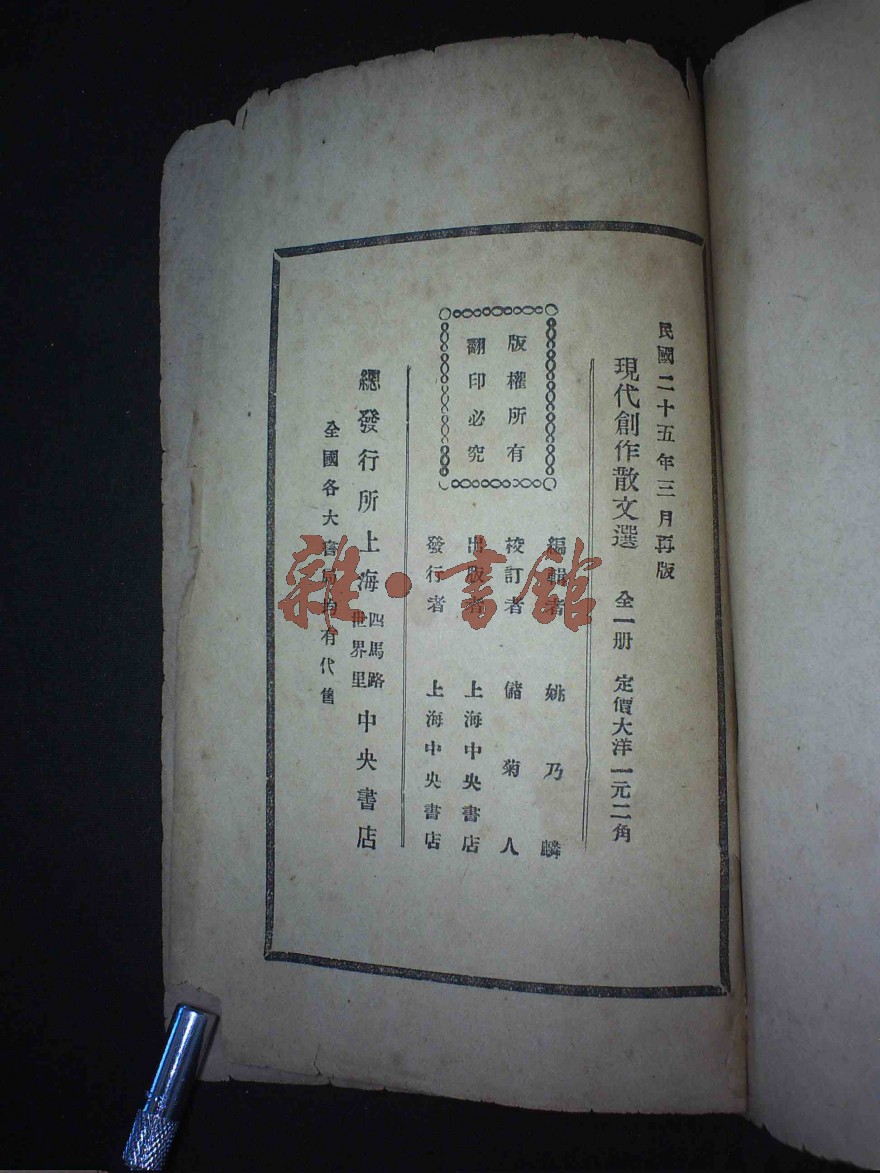 民國二十五年三月再版
現代創作散文選　全一册　定價大洋一元二角
版權所有
翻印必究
編輯者　姚乃麟
校訂者　儲菊人
出版者　上海中央書店
發行者　上海中央書店
總發行所　上海四馬路世界里　中央書店
全國各大書局均有代售
雜·書館